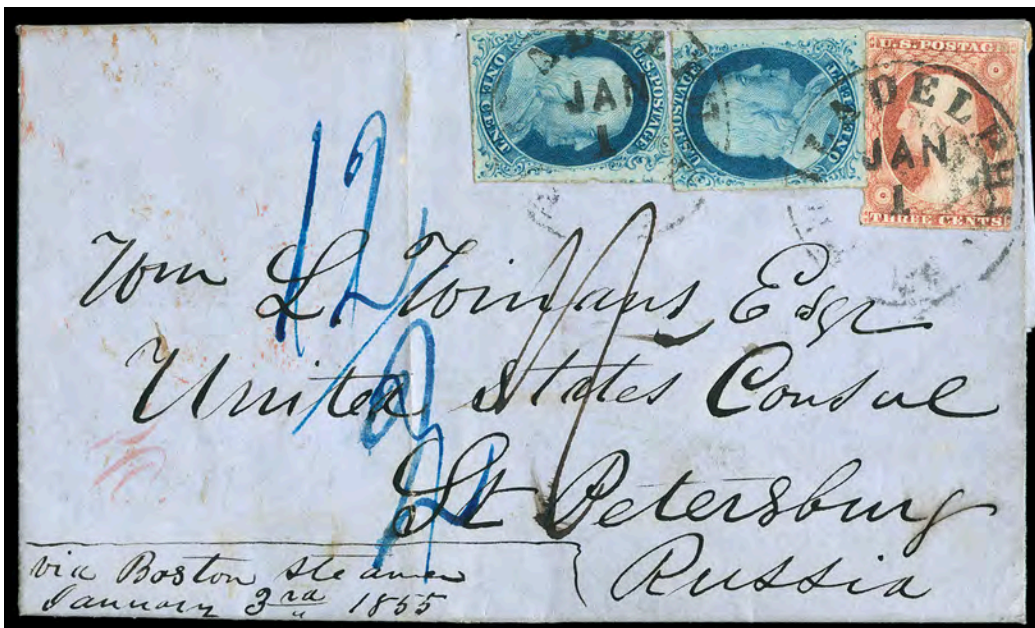 U.S.POSTAGE
ONE CENT
U.S.POSTAGE
ONE CENT
U.S.POSTAGE
THREE CENTS
JAN
1
JAN
1
12
Wm L Winans Esqr
United States Consul
St Petersburg
Russia
via Boston steamer
January 3rd 1855